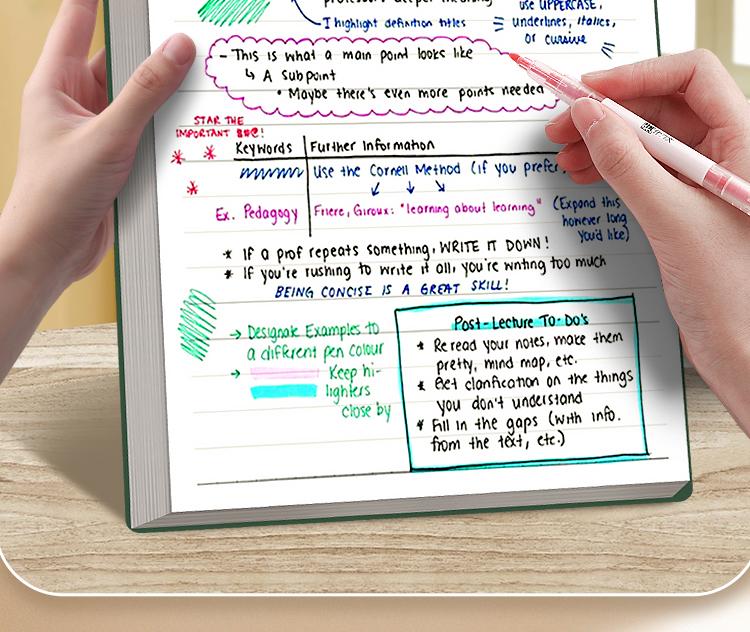 professors deeper meaning
I highlight definition titles
use UPPERCASE,
underlines, italics,
or cursive
- This is what a main point looks like
↳ A Subpoint
• Maybe there's even more points needed
STAR THE
IMPORTANT $#@!
Keywords | Further Information
Use the Cornell Method (if you prefer
Ex. Pedagogy | Friere, Giroux: "learning about learning" (Expand this
however long
you'd like)
* If a prof repeats something, WRITE IT DOWN!
* If you're rushing to write it all, you're writing too much
BEING CONCISE IS A GREAT SKILL!
→ Designate Examples to
a different pen colour
→ Keep hi-
lighters
close by
Post-Lecture To-Do's
* Reread your notes, make them
pretty, mind map, etc.
* Get clarification on the things
you don't understand
* Fill in the gaps (with info.
from the text, etc.)